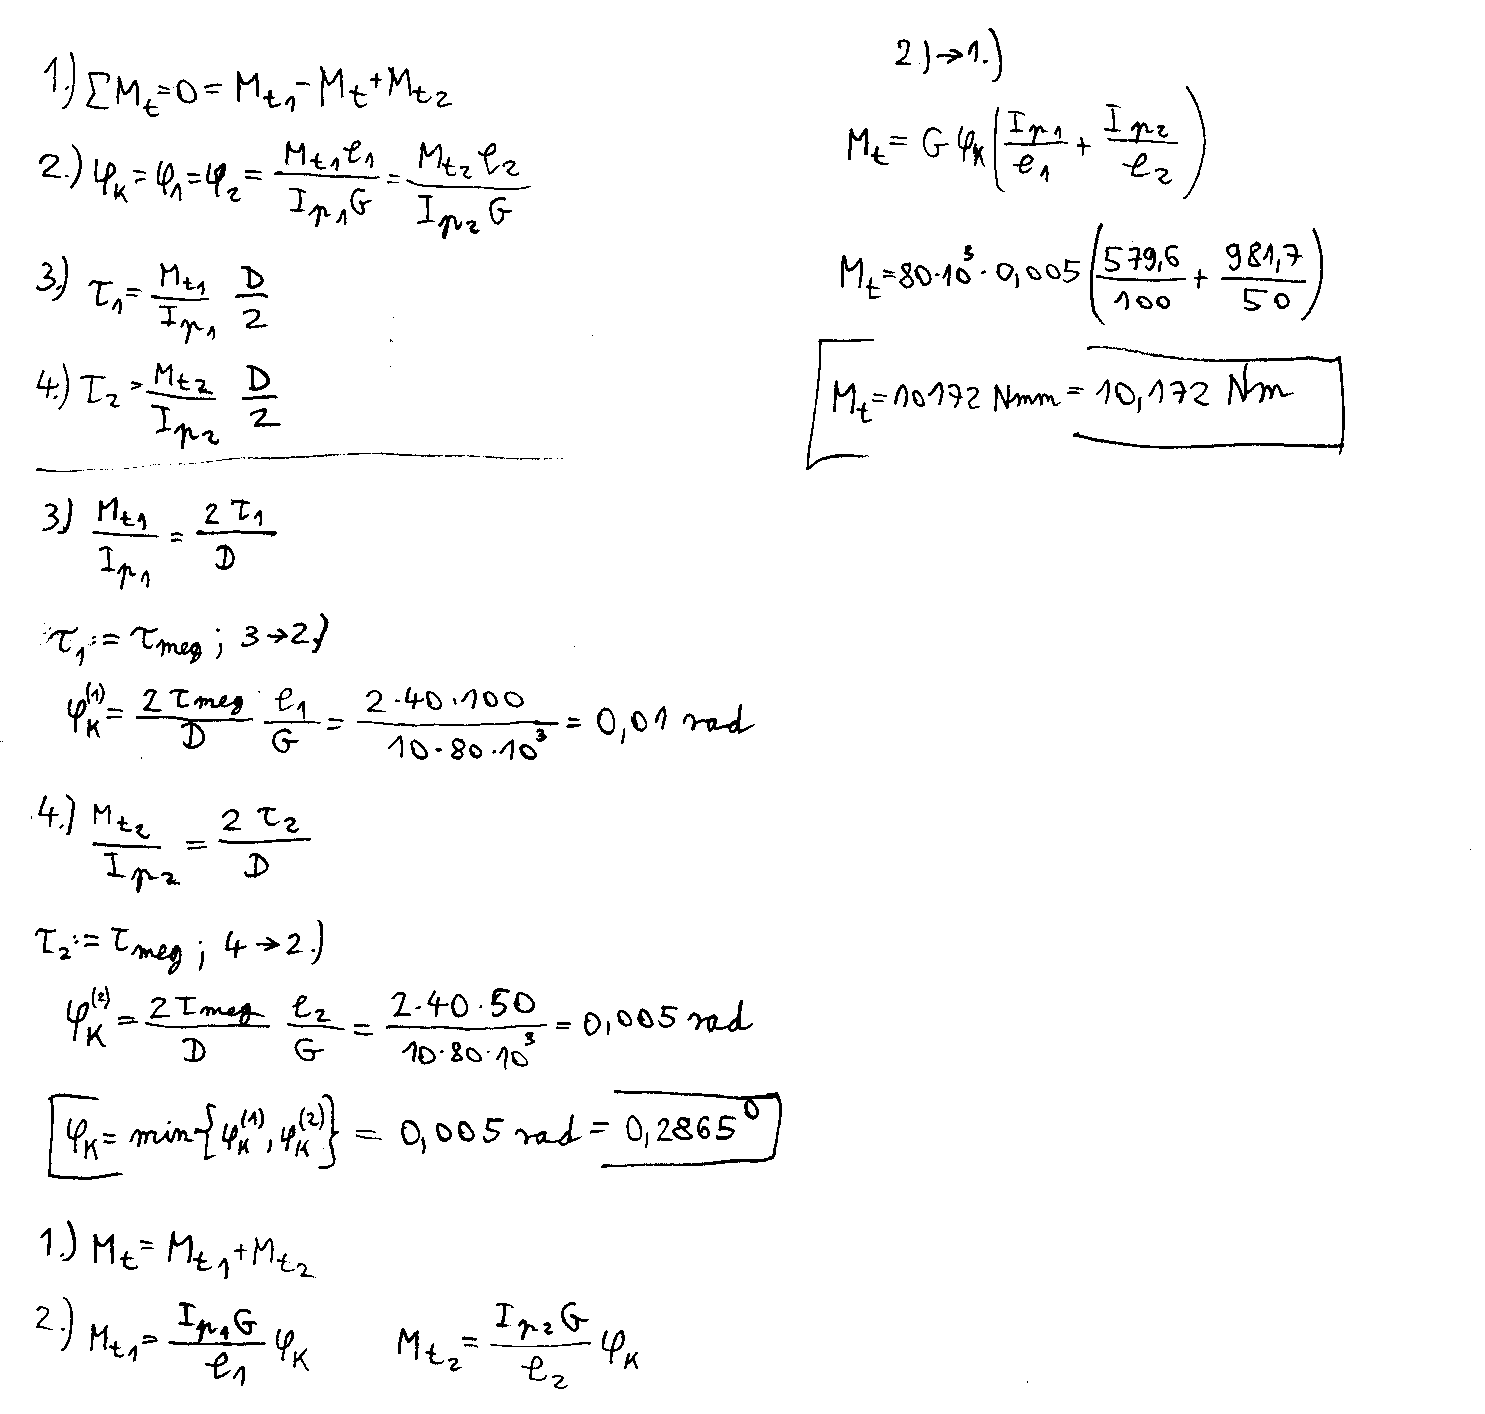 1.) ΣM_t=0=M_t1-M_t+M_t2
2.) φ_K=φ_1=φ_2= (M_t1 ℓ_1)/(I_p1 G) = (M_t2 ℓ_2)/(I_p2 G)
3.) τ_1= M_t1/I_p1 D/2
4.) τ_2= M_t2/I_p2 D/2
3.) M_t1/I_p1 = 2τ_1/D
τ_1:=τ_meg; 3→2.)
φ_K^(1)= 2τ_meg/D ℓ_1/G = (2·40·100)/(10·80·10^3) = 0,01 rad
4.) M_t2/I_p2 = 2τ_2/D
τ_2:=τ_meg; 4→2.)
φ_K^(2)= 2τ_meg/D ℓ_2/G = (2·40·50)/(10·80·10^3) = 0,005 rad
φ_K= min{φ_K^(1), φ_K^(2)} = 0,005 rad = 0,2865°
1.) M_t=M_t1+M_t2
2.) M_t1= (I_p1 G)/ℓ_1 φ_K M_t2= (I_p2 G)/ℓ_2 φ_K
2.)→1.)
M_t= G φ_K (I_p1/ℓ_1 + I_p2/ℓ_2)
M_t=80·10^3·0,005 (579,6/100 + 981,7/50)
M_t=10172 Nmm=10,172 Nm